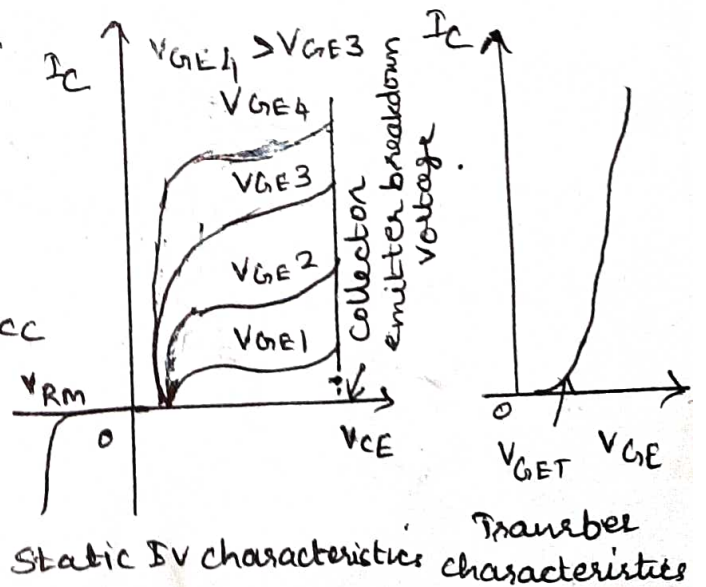 IC
VGE4 > VGE3
VGE4
VGE3
VGE2
VGE1
Collector
emitter breakdown
voltage.
CC
VRM
0
VCE
Static IV characteristics
IC
0
VGET
VGE
Transfer
characteristics